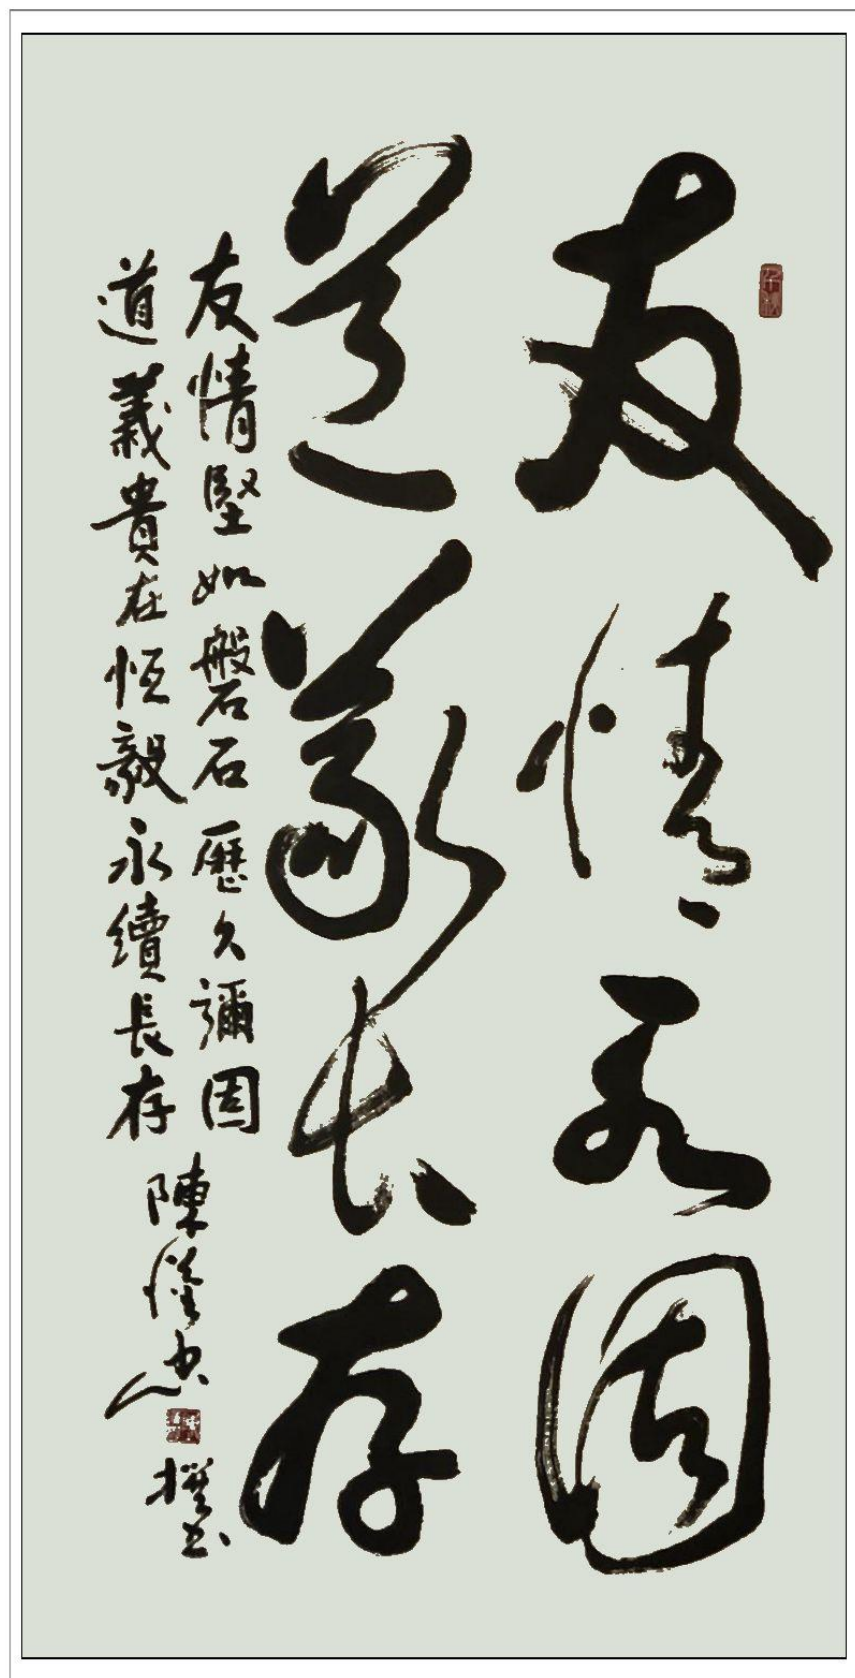 友情永固
道義长存
友情堅如磐石歷久彌固
道義貴在恆毅永續長存
陳 忠
撰书